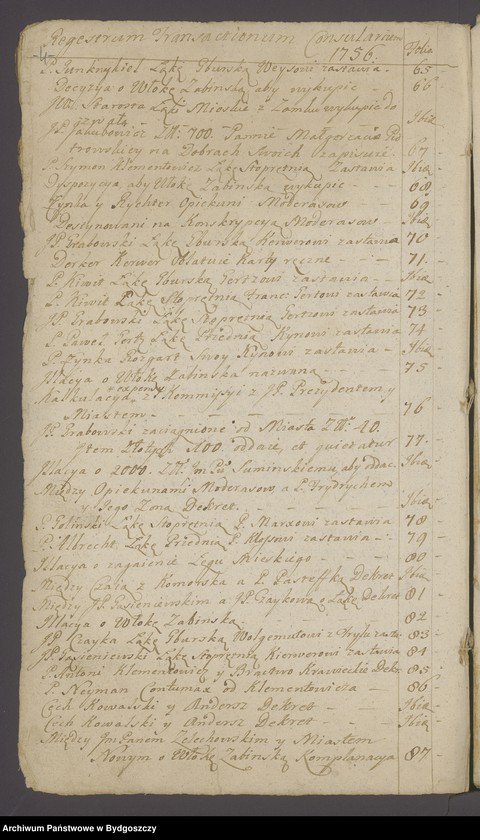 Regestrum Transactionum Consularium
1756. Folia
P. Łąkę Zburską Weysowi zastawia. 65
Decyzya o Włokę Żabinską aby wykupić 66
Starosta Łąki Mieskie z Zamku wykupić do
Ibid
JP. Jakubowicz Złł: 700. Pannie Małgorzacie
na Dobrach Swoich zapisuie 67
P. Szymon Klementowicz Łąkę Stopretnią Zastania Ibid
Dyspozycya, aby Włokę Żabinską wykupić 68
Zynda y Rychter Opiekuni Moderasow 69
Destynowani na Konskrypcyą Moderasow Ibid
JP. Grabowski Łąkę Zburską Kerwerowi zastawia 70
Kerwer Karty ręczne 71.
P. Kiwit Łąkę Zburską Gertzowi zastawia Ibid
P. Kiwit Łąkę Stopretnią Franc: zastawia 72
JP. Grabowski Łąkę Stopretnią Gertzowi zastawia 73
P. Paweł Łąkę Przednią Kynowi zastawia 74
P. Zynka Swoy Kynowi zastawia Ibid
Illacya o Włokę Żabinską nazwaną 75
Kalkulacya, expensy z Kommissyi z JP. Prezydentem y
Miastem 76
JP. Grabowski zaciągnione od Miasta Złł: 40.
Item Złotych 100. oddaie, et quietatur 77
Illacya o 2000. Złł: Suminskiemu, aby oddać. Ibid
Między Opiekunami Moderasow, a P. Frydrychem
y Jego Żoną Dekret. Ibid
P. Goliński Łąkę Stopretnią P. Marxowi zastawia 78
P. Albrecht Łąkę Przednią P. Klossowi zastawia 79
Illacya o zagaienie Łęgu Mieskiego 80
Między z Komorską a P. Dekret Ibid
Między JP. Jasienieckim a JP. Czaykową o Łąkę Dekret 81
Illacya o Włokę Żabinską 82
JP. Czayka Łąkę Zburską Wolgemutowi 83
JP. Jasieniecki Łąkę Stopretnią Kierwerowi zastawia 84
P. Antoni Klementowicz y Bractwo Krawieckie Dekr 85
P. Neyman Contumax od Klementowicza 86
Cech Kowalski y Andersz Dekret Ibid
Cech Kowalski y Andersz Dekret Ibid
Między ImPanem Zelechowskim y Miastem
Nowym o Włokę Żabinską Komplanacya 87
Archiwum Państwowe w Bydgoszczy